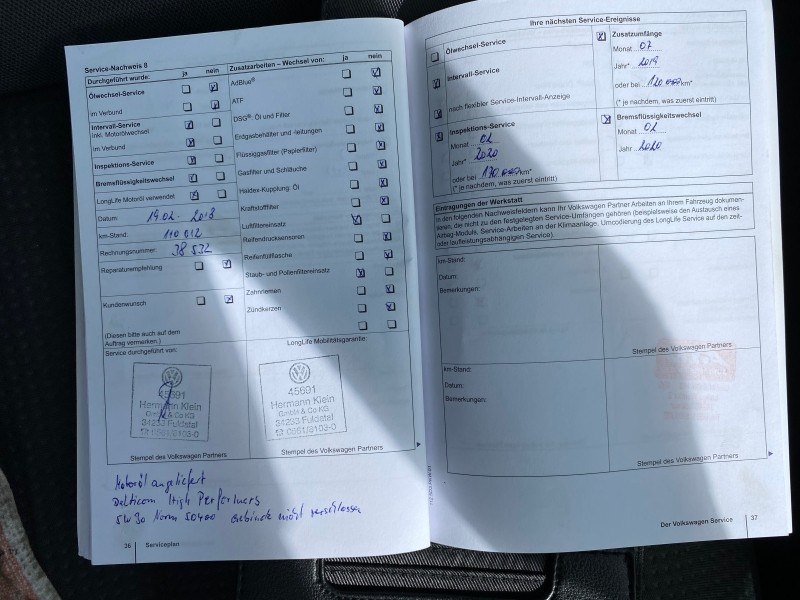 Service-Nachweis 8
Durchgeführt wurde: ja nein
Ölwechsel-Service
im Verbund
Intervall-Service
inkl. Motorölwechsel
im Verbund
Inspektions-Service
Bremsflüssigkeitswechsel
LongLife Motoröl verwendet
Datum: 19.02. 2018
km-Stand: 110 012
Rechnungsnummer: 38 532
Reparaturempfehlung
Kundenwunsch
(Diesen bitte auch auf dem
Auftrag vermerken.)
Service durchgeführt von:
45691
Hermann Klein
GmbH & Co KG
34233 Fuldatal
Stempel des Volkswagen Partners
Zusatzarbeiten – Wechsel von: ja nein
AdBlue®
ATF
DSG®: Öl und Filter
Erdgasbehälter und -leitungen
Flüssiggasfilter (Papierfilter)
Gasfilter und Schläuche
Haldex-Kupplung: Öl
Kraftstofffilter
Luftfiltereinsatz
Reifendrucksensoren
Reifenfüllflasche
Staub- und Pollenfiltereinsatz
Zahnriemen
Zündkerzen
LongLife Mobilitätsgarantie:
45691
Hermann Klein
GmbH & Co KG
34233 Fuldatal
Stempel des Volkswagen Partners
Motoröl angeliefert
Delticom High Performers
5W30 Norm 50400 Gebinde nicht verschlossen
36 Serviceplan
Ihre nächsten Service-Ereignisse
Ölwechsel-Service
Intervall-Service
nach flexibler Service-Intervall-Anzeige
Inspektions-Service
Monat 02
Jahr* 2020
oder bei 170.000 km*
(* je nachdem, was zuerst eintritt)
Zusatzumfänge
Monat 02
Jahr* 2019
oder bei 120.000 km*
(* je nachdem, was zuerst eintritt)
Bremsflüssigkeitswechsel
Monat 02
Jahr 2020
Eintragungen der Werkstatt
In den folgenden Nachweisfeldern kann Ihr Volkswagen Partner Arbeiten an Ihrem Fahrzeug dokumen-
tieren, die nicht zu den festgelegten Service-Umfängen gehören (beispielsweise den Austausch eines
Airbag-Moduls, Service-Arbeiten an der Klimaanlage, Umcodierung des LongLife Service auf den zeit-
oder laufleistungsabhängigen Service).
km-Stand:
Datum:
Bemerkungen:
Stempel des Volkswagen Partners
km-Stand:
Datum:
Bemerkungen:
Stempel des Volkswagen Partners
Der Volkswagen Service 37